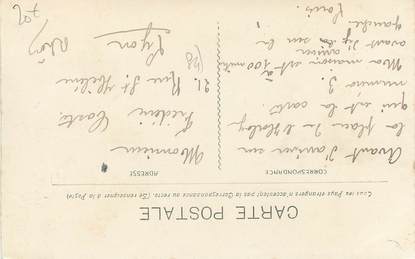 CARTE POSTALE
Tous les Pays étrangers n'acceptent pas la Correspondance au recto. (Se renseigner à la Poste)
CORRESPONDANCE
ADRESSE
Avant d'arriver sur
la place de
qui est la carte
numéro 3.
Ma maison est à 100 mètres
avant d'y arriver
sur la
gauche.
Louis.
Monsieur
Frédéric
21. Rue St Hélène
Lyon
Rhône